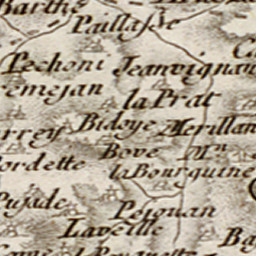 Barthe
Paillasse
Pechoni Jeanvignan
emejan la Prat
rrey Bidoye Merillan
Bove Mn
ordette la Bourguine
Pujade Peignan
Laveille Ba